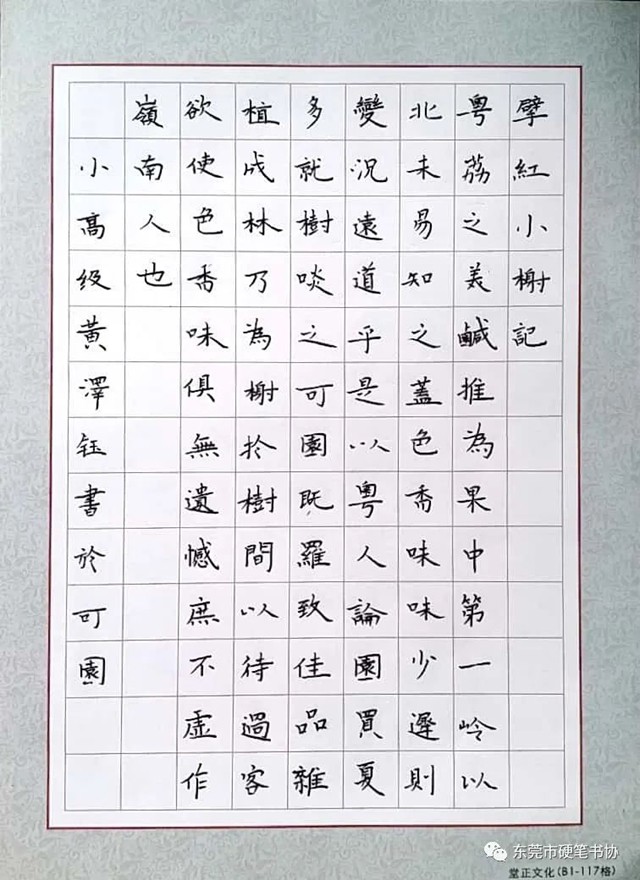 擘紅小榭記
粵荔之美鹹推為果中第一岭以
北未易知之蓋色香味味少遲則
變況遠道乎是以粵人論園買夏
多就樹啖之可園既羅致佳品雜
植成林乃為榭於樹間以待過客
欲使色香味俱無遺憾庶不虛作
嶺南人也
小高级黃澤钰書於可園
东莞市硬笔书协
堂正文化(B1-117格)